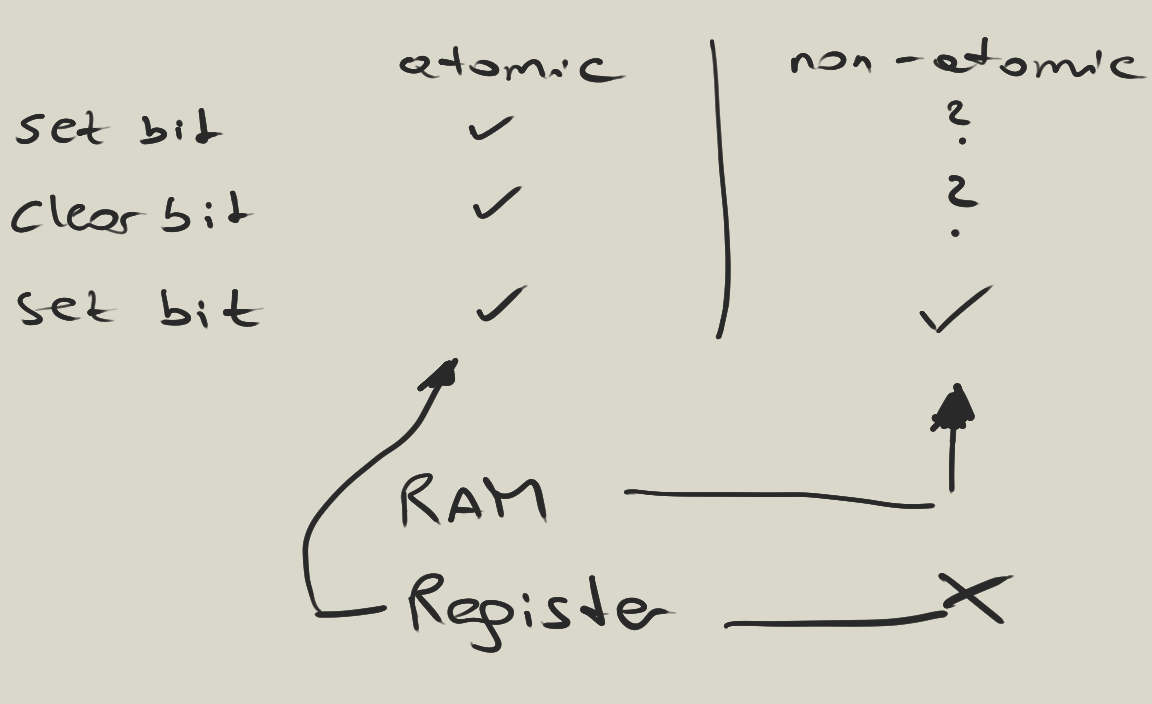 atomic non-atomic
set bit ✓ ?
clear bit ✓ ?
set bit ✓ ✓
RAM
Register ✗